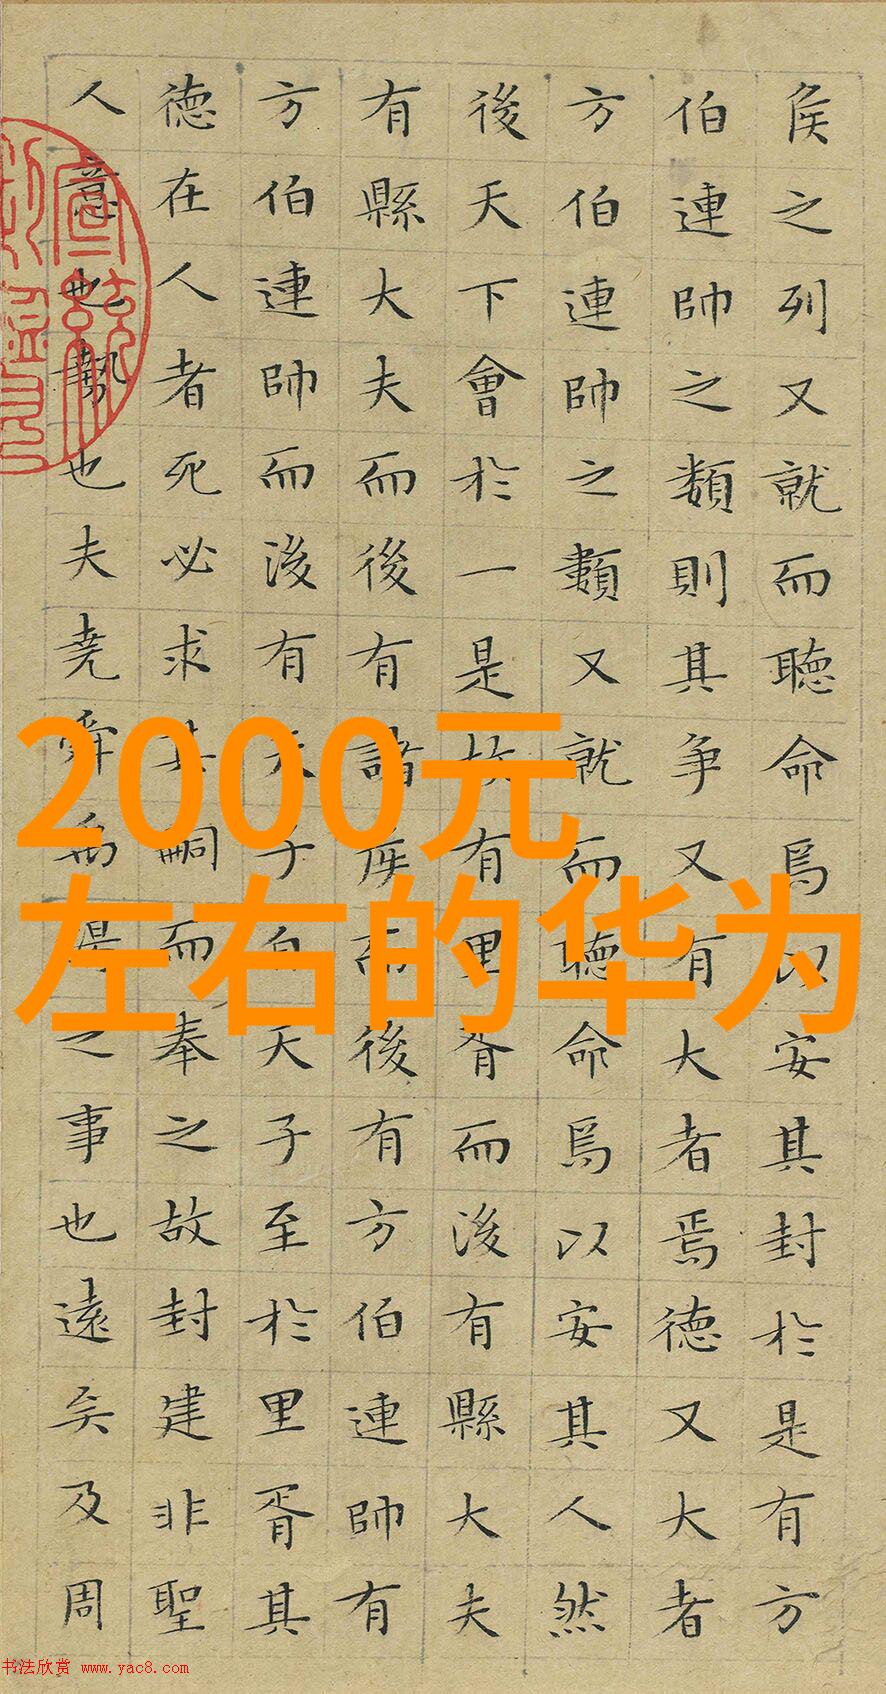 侯之列又就而聴命焉以安其封於是有方
伯連帥之類則其爭又有大者焉徳又大者
方伯連帥之類又就而聴命焉以安其人然
後天下會於一是故有里胥而後有縣大夫
有縣大夫而後有諸侯而後有方伯連帥有
方伯連帥而後有天子自天子至於里胥其
徳在人者死必求其嗣而奉之故封建非聖
人意也勢也夫堯舜禹湯之事也遠矣及周
2000元
左右的华为
书法欣赏 www.yac8.com